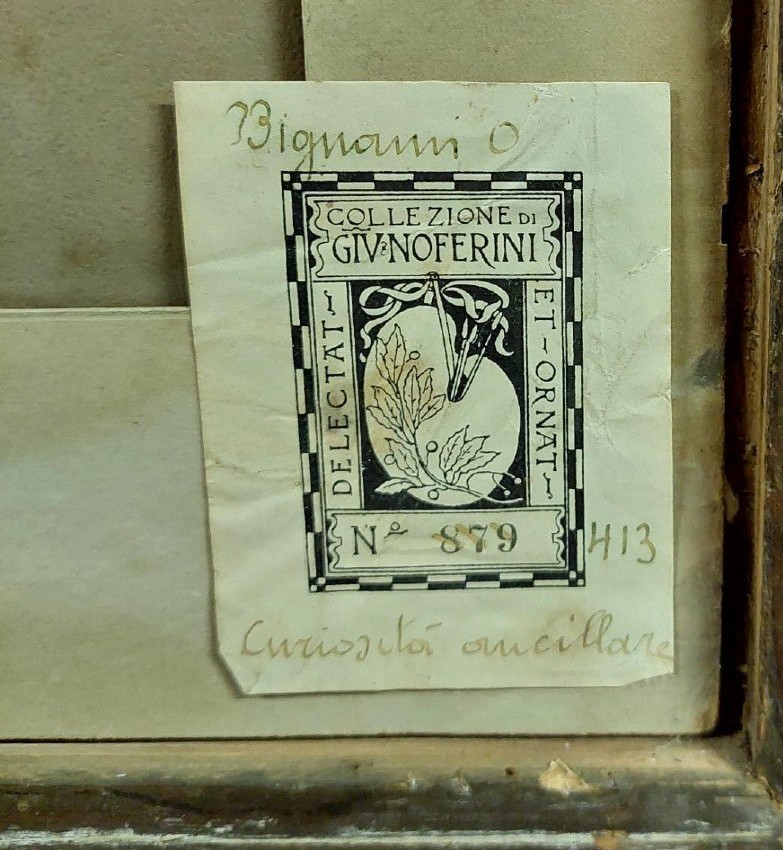 Bignami O
COLLEZIONE DI
GIV. NOFERINI
DELECTAT
ET - ORNAT
Nº 879
413
Curiosità ancillare